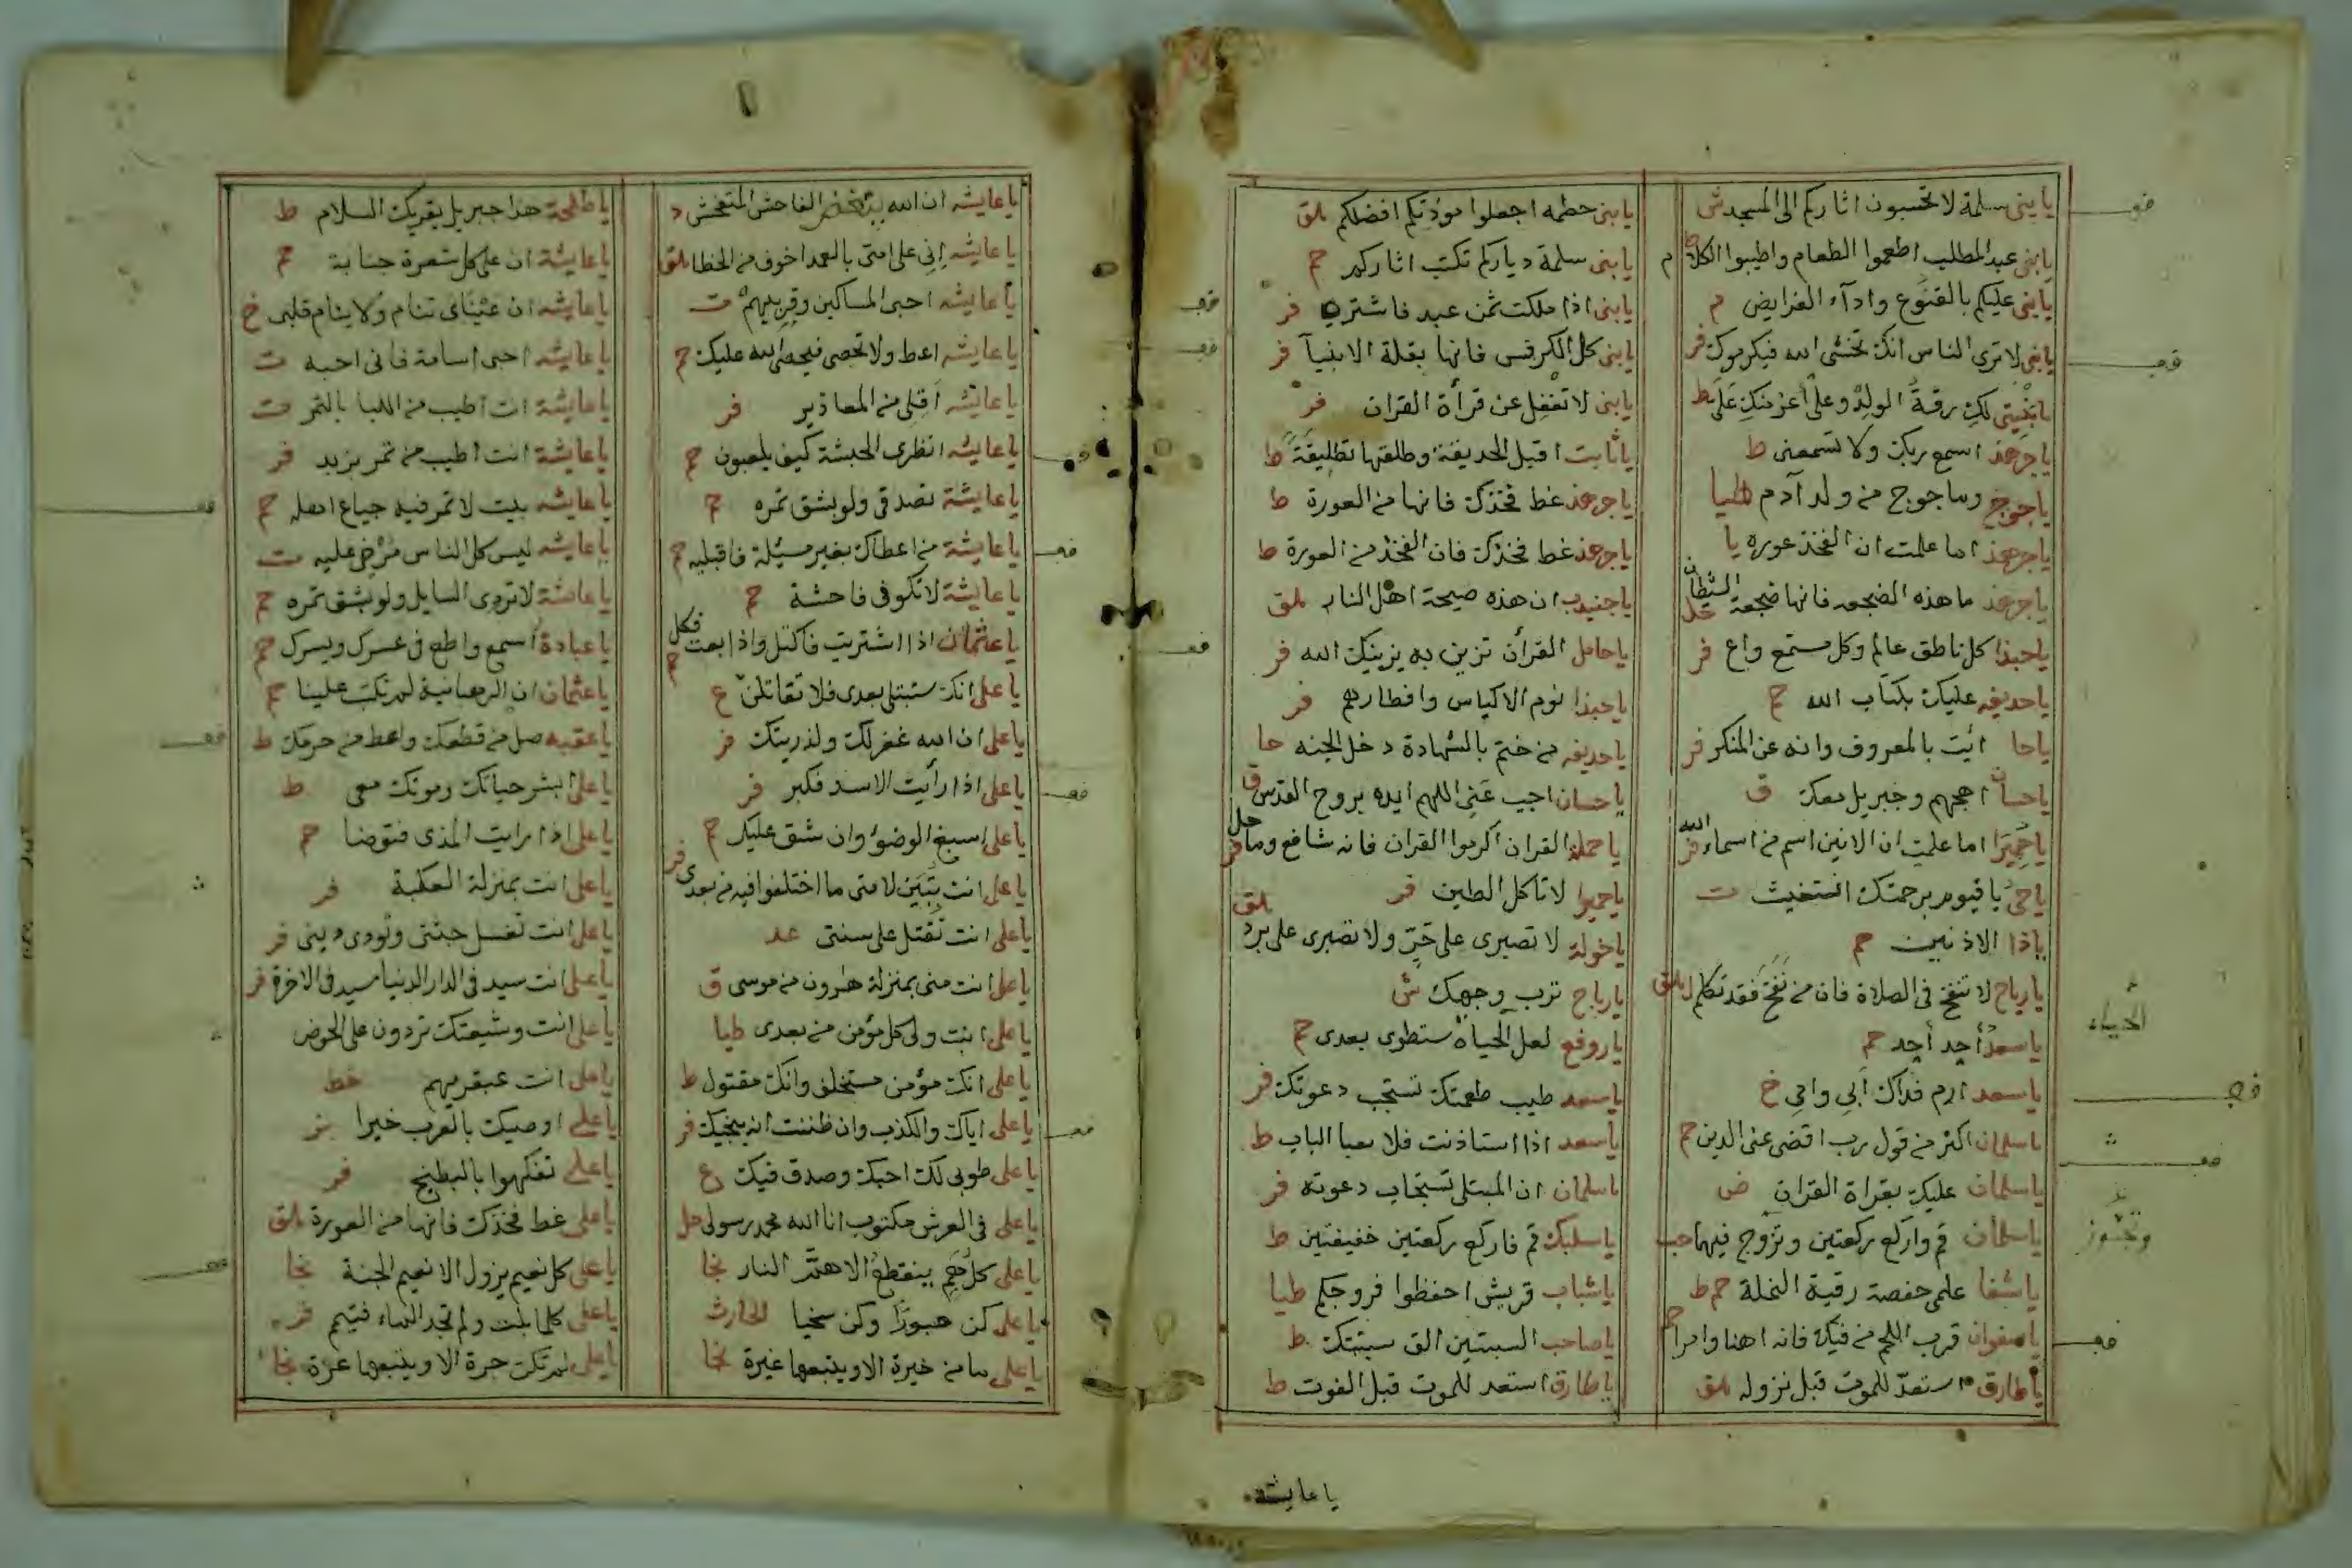 يا بنى سلمة لا تحتسبون اثاركم الى المسجد ش
يا بنى عبد المطلب اطعموا الطعام واطيبوا الكلام ط
يا بنى عليكم بالقنوع واداء الفرايض م
يا بنى لا ترى الناس انك تخشى الله فيكرموك فر
يا بنيتى لك رقة الولد وعلى اعز منك على ط
يا جرهد اسمع بربك ولا تسمعنى ط
ياجوج وماجوج من ولد آدم طيا
يا جرهد اما علمت ان الفخذ عورة يا
يا جرهد ما هذه الضجعه فانها ضجعة الشيطان حل
يا حبذا كل ناطق عالم وكل مستمع واع فر
يا حذيفه عليك بكتاب الله حم
يا حا ائت بالمعروف وانه عن المنكر فر
يا حسان اهجهم وجبريل معك ق
يا حميرا اما علمت ان الانين اسم من اسماء الله فر
يا حى يا قيوم برحمتك استغيث ت
يا ذا الاذنين حم
يا رباح لا تنفخ فى الصلاة فان من نفخ فقد تكلم ملق
يا سعد أحد أحد حم
يا سعد ارم فداك ابى وامى خ
يا سلمان اكثر من قول رب اقضى عنى الدين حم
يا سلمان عليك بقراة القران ض
يا سلمان قم واركع ركعتين وتزوج فيهما حب
يا شفا علمى حفصة رقية النملة حم ط
يا صفوان قرب اللحم من فيك فانه اهنا وامرا حم
يا طارق استعد للموت قبل نزوله ملق
يا بنى خطمه اجعلوا موذنكم افضلكم ملق
يا بنى سلمة دياركم تكتب اثاركم حم
يا بنى اذا ملكت ثمن عبد فاشتريه فر
يا بنى كل الكرفس فانها بقلة الانبيآ فر
يا بنى لا تغفل عن قرأة القران فر
يا ثابت اقبل الحديقة وطلقها تطليقة ط
يا جرهد غط فخذك فانها من العورة ط
يا جرهد غط فخذك فان الفخذ من العورة ط
يا جنيدب ان هذه ضجعة اهل النار ملق
يا حامل القرأن تزين به يزينك الله فر
يا حبذا نوم الاكياس وافطارهم فر
يا حذيفه من ختم بالشهادة دخل الجنه حا
يا حسان اجب عنى اللهم ايده بروح القدس ق
يا حملة القران اكرموا القران فانه شافع وماحل فر
يا حميرا لا تاكل الطين فر
يا خولة لا تصبرى على حر ولا تصبرى على برد ملق
يا رباح ترب وجهك ش
يا رويفع لعل الحياة ستطول بعدى حم
يا سعد طيب طعمتك تستجب دعوتك فر
يا سعد اذا استاذنت فلا الباب ط
يا سلمان ان المبتلى تستجاب دعوته فر
يا سليك قم فاركع ركعتين خفيفتين ط
يا شباب قريش احفظوا فروجكم طيا
يا صاحب السبتين الق سبتتك ط
يا طارق استعد للموت قبل الفوت ط
الحياه
وتجوز
يا عايشه
يا عايشه ان الله يبغض الفاحش المتفحش د
يا عايشه انى على امتى بالعمد اخوف من الخطا ملق
يا عايشه احبى المساكين وقربيهم ت
يا عايشه اعط ولا تحصى فيحصى الله عليك حم
يا عايشه اقلى من المعاذير فر
يا عايشه انظرى الحبشة كيف يلعبون حم
يا عايشة تصدقى ولو بشق تمره حم
يا عايشة من اعطاك بغير مسئلة فاقبليه حم
يا عايشة لا تكونى فاحشة حم
يا عثمان اذا اشتريت فاكتل واذا بعت فكل
يا على انك ستبتلى بعدى فلا تقاتلن ع
يا على ان الله غفر لك ولذريتك فر
يا على اذا رأيت الاسد فكبر فر
يا على اسبغ الوضوء وان شق عليك حم
يا على انت تبين لامتى ما اختلفوا فيه من بعدى فر
يا على انت تقتل على سنتى عد
يا على انت منى بمنزلة هارون من موسى ق
يا على انت ولى كل مؤمن من بعدى طيا
يا على انك مؤمن مستخلف وانك مقتول ط
يا على اياك والكذب وان ظننت انه ينجيك فر
يا على طوبى لك احبك وصدق فيك ع
يا على فى العرش مكتوب انا الله محمد رسولى حل
يا على كل هم ينقطع الا هم النار نجا
يا على كن صبورا وكن سخيا الحارث
يا على ما من خيرة الا ويتبعها غيرة نجا
يا طلحة هذا جبريل يقريك السلام ط
يا عايشة ان على كل شعرة جنابة حم
يا عايشه ان عيناى تنام ولا ينام قلبى خ
يا عايشه احبى اسامة فانى احبه ت
يا عايشة انت اطيب من اللبا بالتمر ت
يا عايشة انت اطيب من تمر بزبد فر
يا عايشه بيت لا تمر فيه جياع اهله حم
يا عايشه ليس كل الناس مرخى عليه ت
يا عايشة لا تردى السايل ولو بشق تمره حم
يا عبادة اسمع واطع فى عسرك ويسرك حم
يا عثمان ان الرهبانية لم تكتب علينا حم
يا عقبه صل من قطعك واعط من حرمك ط
يا على ابشر حياتك وموتك معى ط
يا على اذا رايت المذى فتوضا حم
يا على انت بمنزلة الكعبة فر
يا على انت تغسل جثتى وتودى دينى فر
يا على انت سيد فى الدار الدنيا سيد فى الاخرة فر
يا على انت وشيعتك تردون على الحوض
يا على انت عبقريهم خط
يا على اوصيك بالعرب خيرا بز
يا على تفكهوا بالبطيخ فر
يا على غط فخذك فانها من العورة ملق
يا على كل نعيم يزول الا نعيم الجنة نجا
يا على كلما بلت ولم تجد الماء فتيمم فر